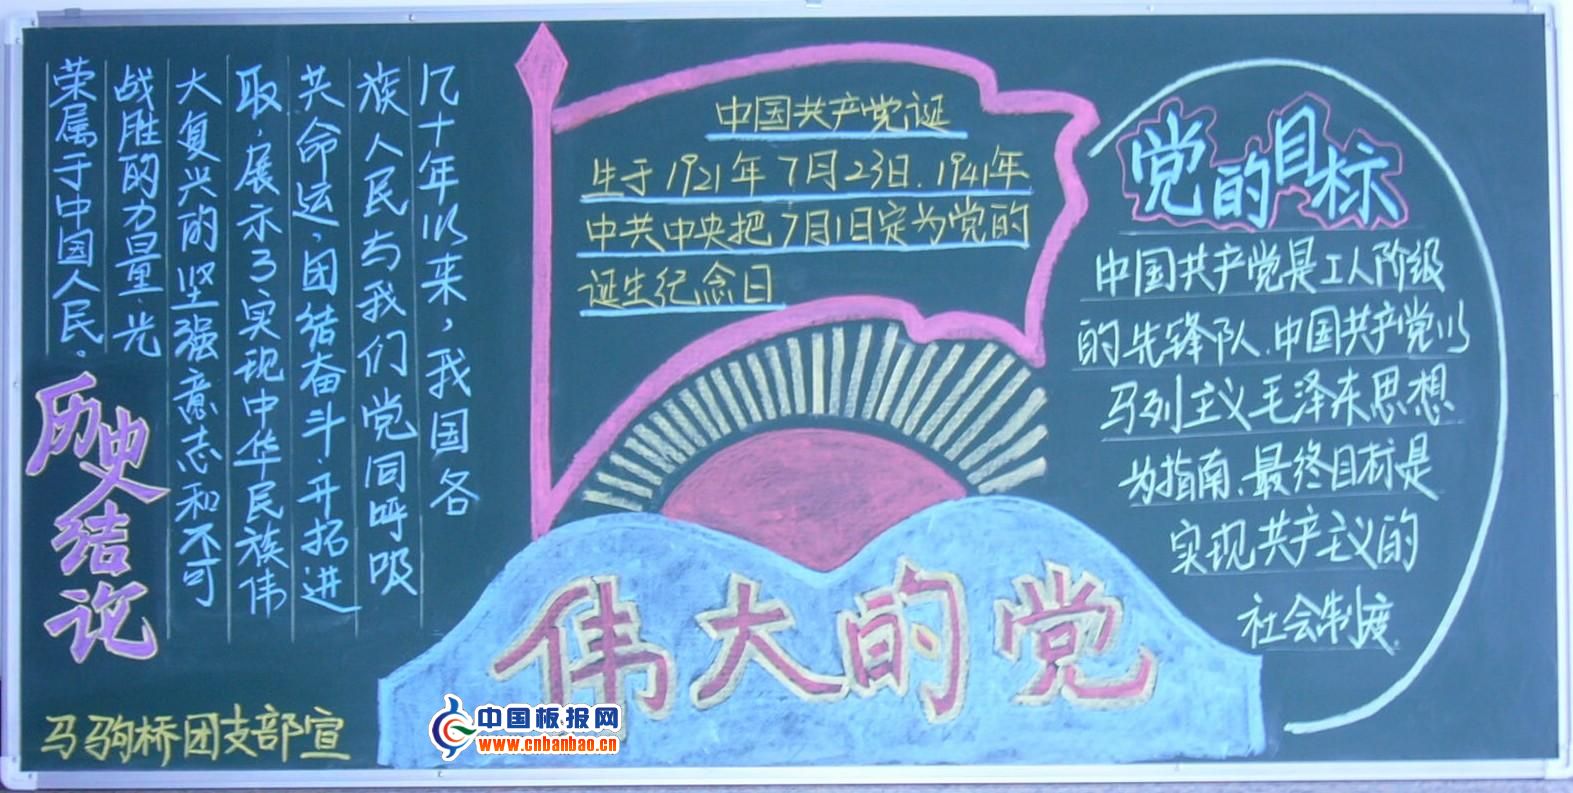 几十年以来，我国各
族人民与我们党同呼吸
共命运，团结奋斗，开拓进
取，展示了实现中华民族伟
大复兴的坚强意志和不可
战胜的力量，光
荣属于中国人民。
历史结论
马驹桥团支部宣
中国共产党诞
生于1921年7月23日，1941年
中共中央把7月1日定为党的
诞生纪念日
伟大的党
党的目标
中国共产党是工人阶级
的先锋队、中国共产党以
马列主义毛泽东思想
为指南、最终目标是
实现共产主义的
社会制度
中国板报网
www.cnbanbao.cn